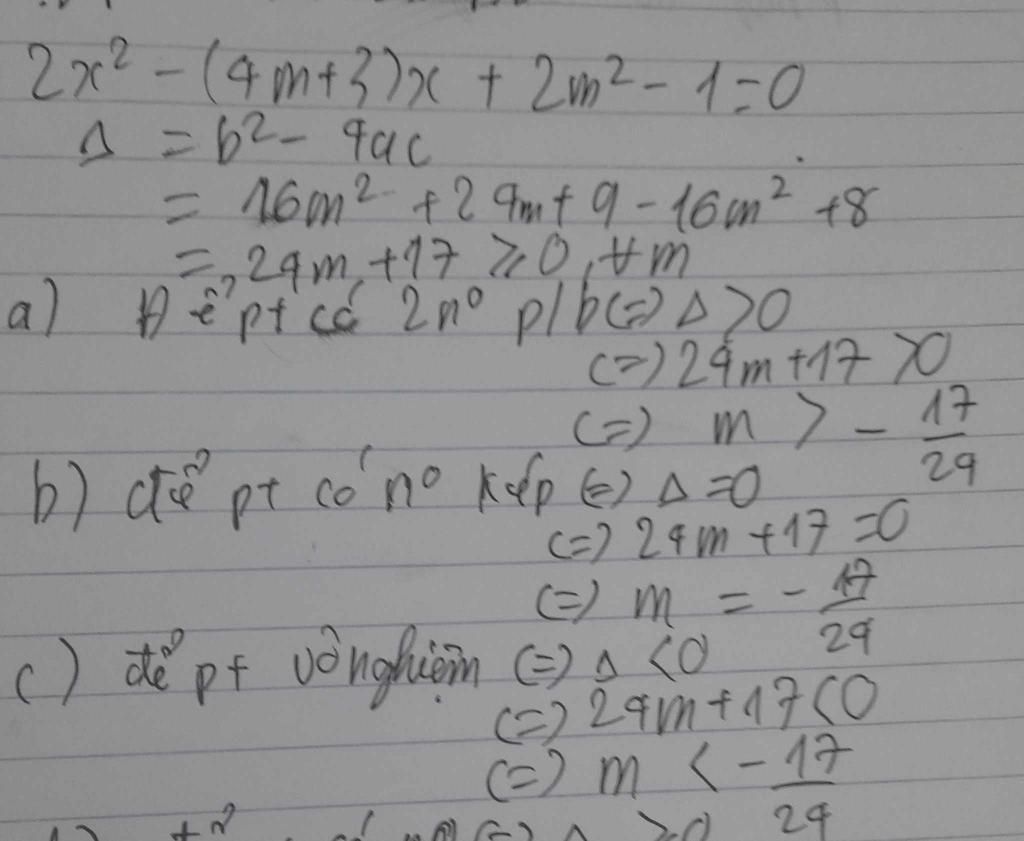 2x² - (4m+3)x + 2m² - 1 = 0
Δ = b² - 4ac
= 16m² + 24m + 9 - 16m² + 8
= 24m + 17 ≥ 0, ∀m
a) Để pt có 2 n⁰ p/b (=) Δ > 0
(=) 24m + 17 > 0
(=) m > - 17/24
b) để pt có n⁰ kép (=) Δ = 0
(=) 24m + 17 = 0
(=) m = - 17/24
c) để pt vô nghiệm (=) Δ < 0
(=) 24m + 17 < 0
(=) m < - 17/24
(=) Δ ≥ 0